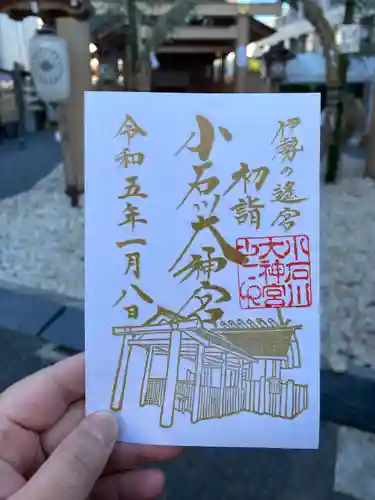 伊勢の遙宮
初詣
小石川大神宮
令和五年一月八日
小石川
大神宮
之印